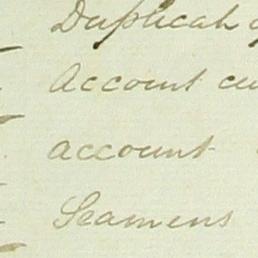 Duplicate
Account cu
account
Seamens